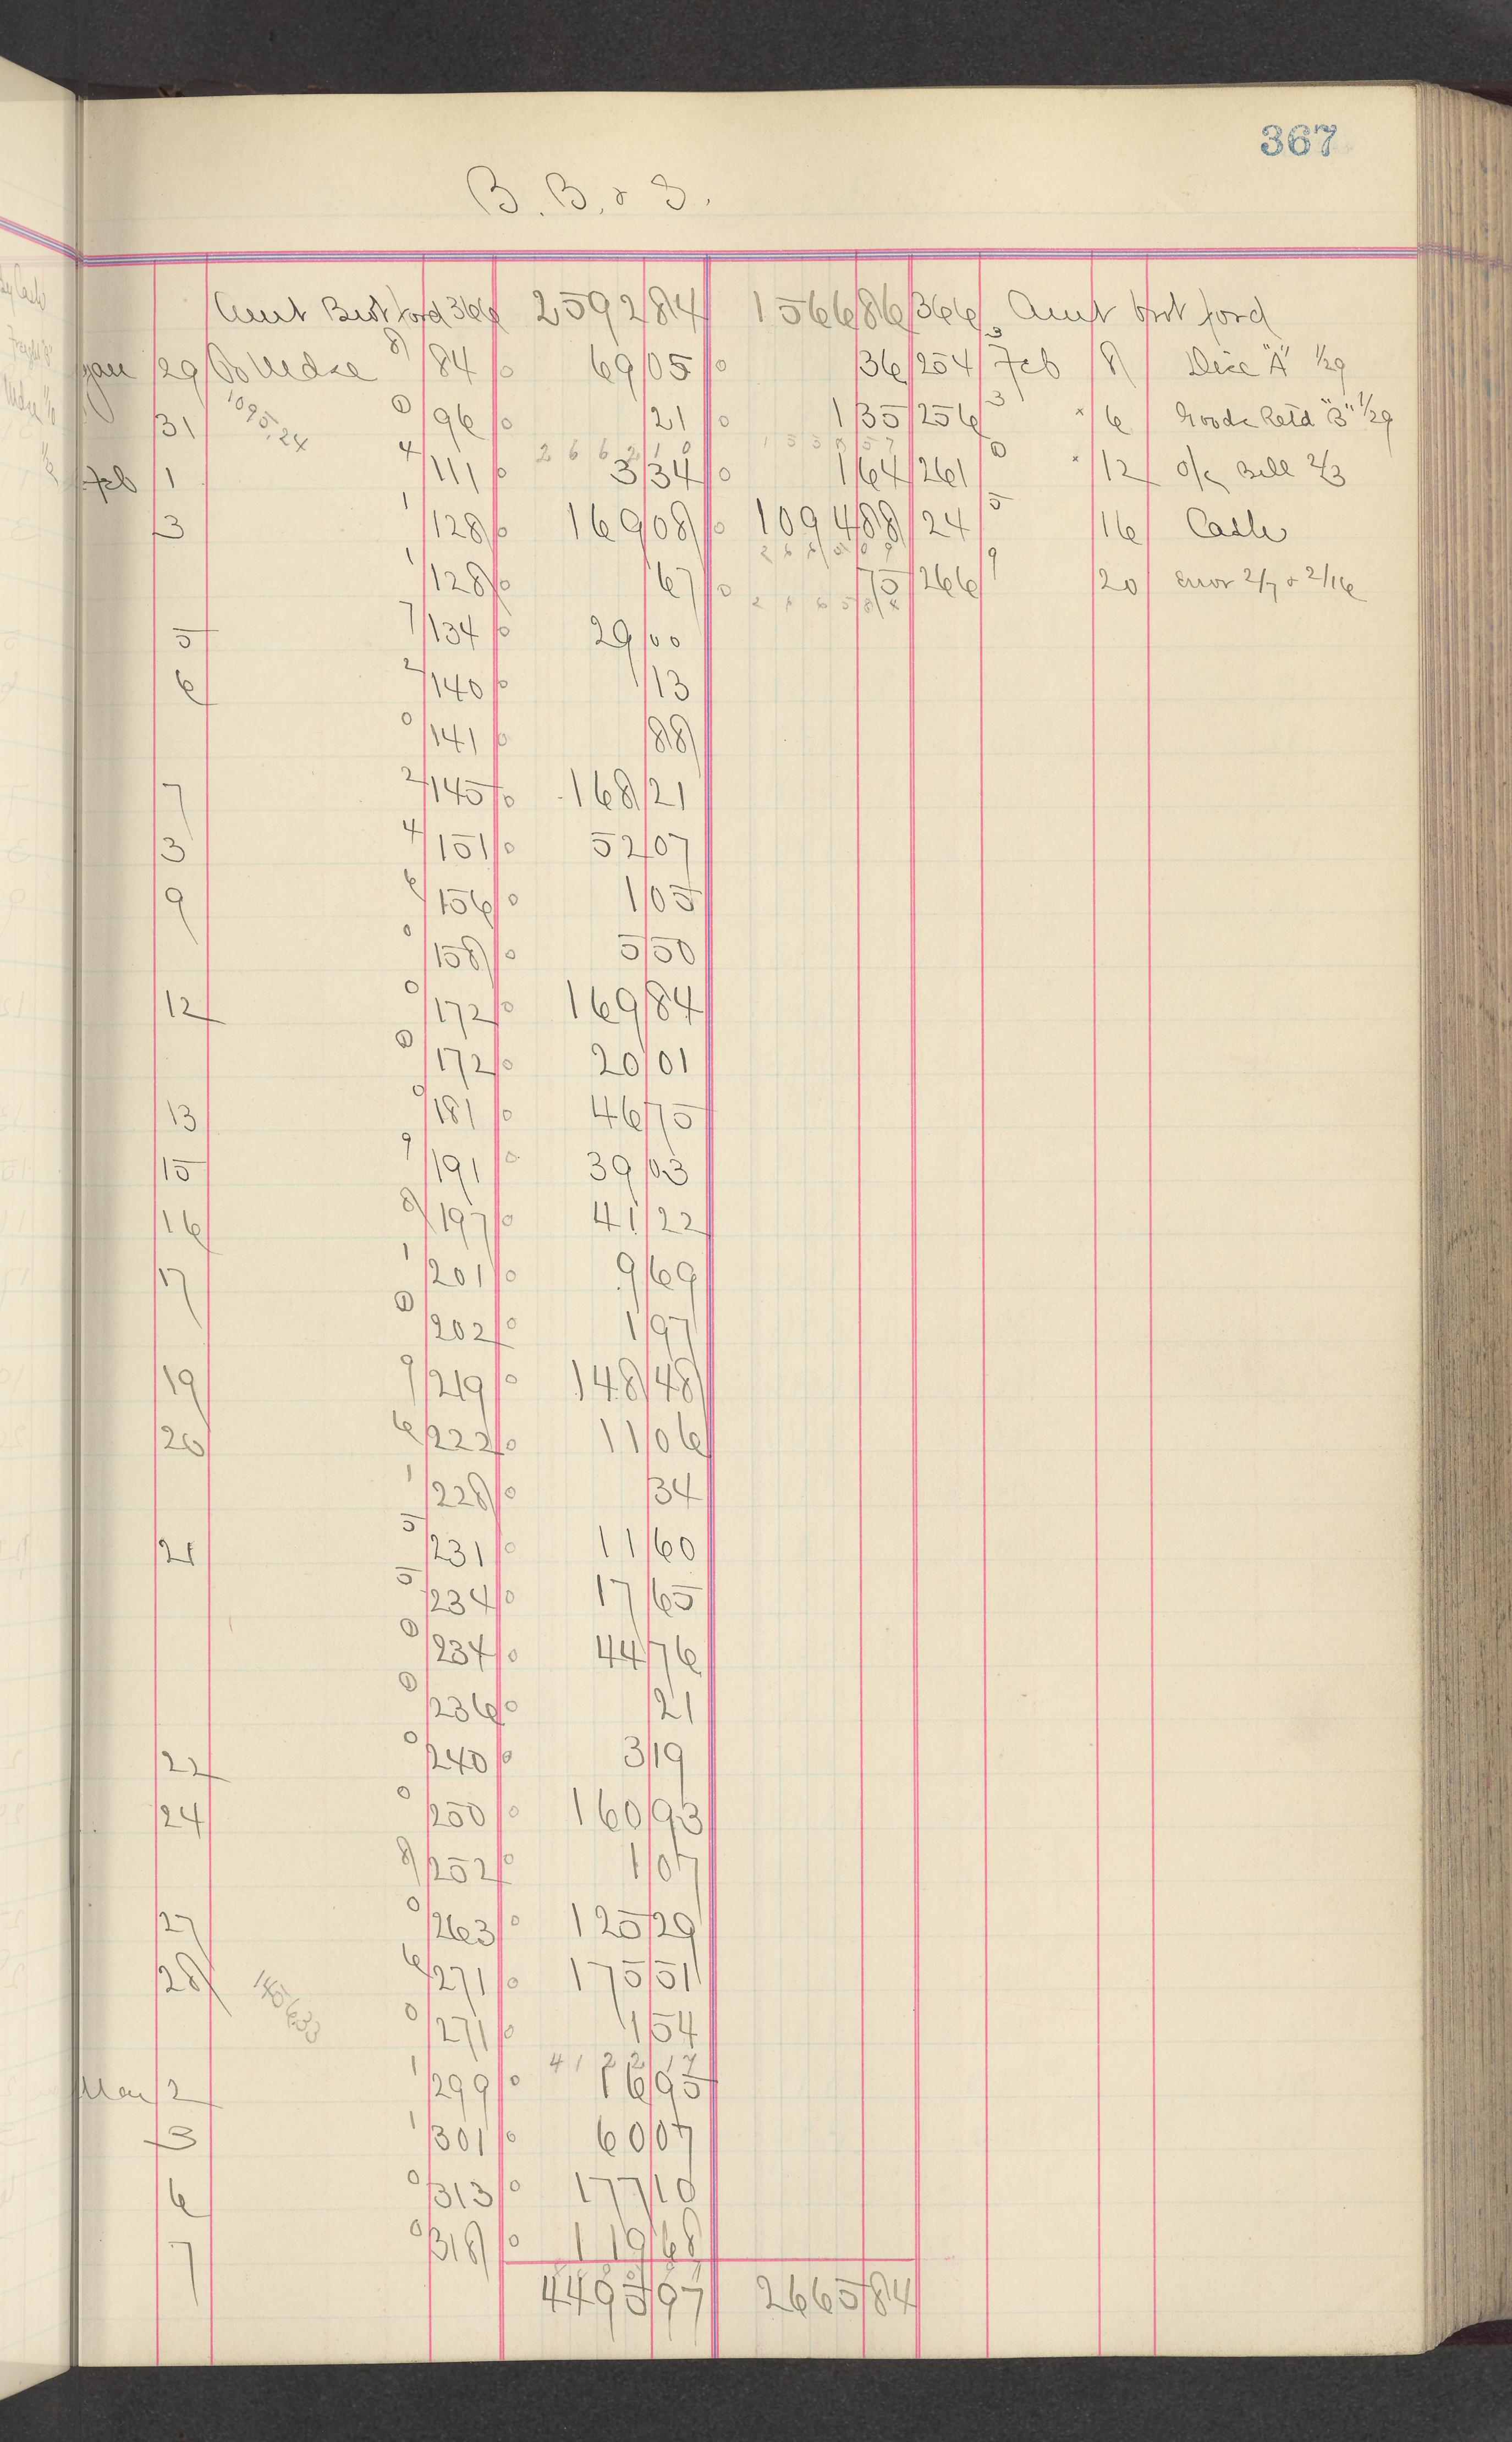 367
B. B. & S.
Amt Brot ford 366 2592 84 1566 86 366 Amt brot ford
Jan 29 To Mdse 8 84 69 05 36 254 3 Feb 8 Disc "A" 1/29
1095.24
31 0 96 21 1 35 256 3 6 Goods Retd "B" 1/29
2662 10
Feb 1 4 111 3 34 1 64 261 0 12 O/c Bill 2/3
3 1 128 169 08 1094 88 24 5 16 Cash
2665 09
1 128 67 75 266 9 20 Error 2/7 & 2/16
2665 84
5 7 134 29 00
6 2 140 13
0 141 88
7 2 145 168 21
3 4 151 52 07
9 6 156 1 05
0 158 5 50
12 0 172 169 84
0 172 20 01
13 0 181 46 75
15 9 191 39 03
16 8 197 41 22
17 1 201 9 69
0 202 1 97
19 9 219 148 48
20 6 222 11 06
1 228 34
21 5 231 11 60
5 234 17 65
0 234 44 76
0 236 21
22 0 240 3 19
24 0 250 160 93
8 252 1 07
27 0 263 125 29
28 6 271 175 51
0 271 1 54
4122 17
Mar 2 1 299 16 95
3 1 301 60 07
6 0 313 177 10
7 0 318 119 68
4495 97 2665 84